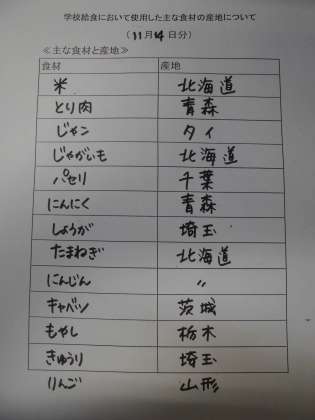 学校給食において使用した主な食材の産地について
（11月14日分）
≪主な食材と産地≫
食材 産地
米 北海道
とり肉 青森
じャン タイ
じゃがいも 北海道
パセリ 千葉
にんにく 青森
しょうが 埼玉
たまねぎ 北海道
にんじん 〃
キャベツ 茨城
もやし 栃木
きゅうり 埼玉
りんご 山形